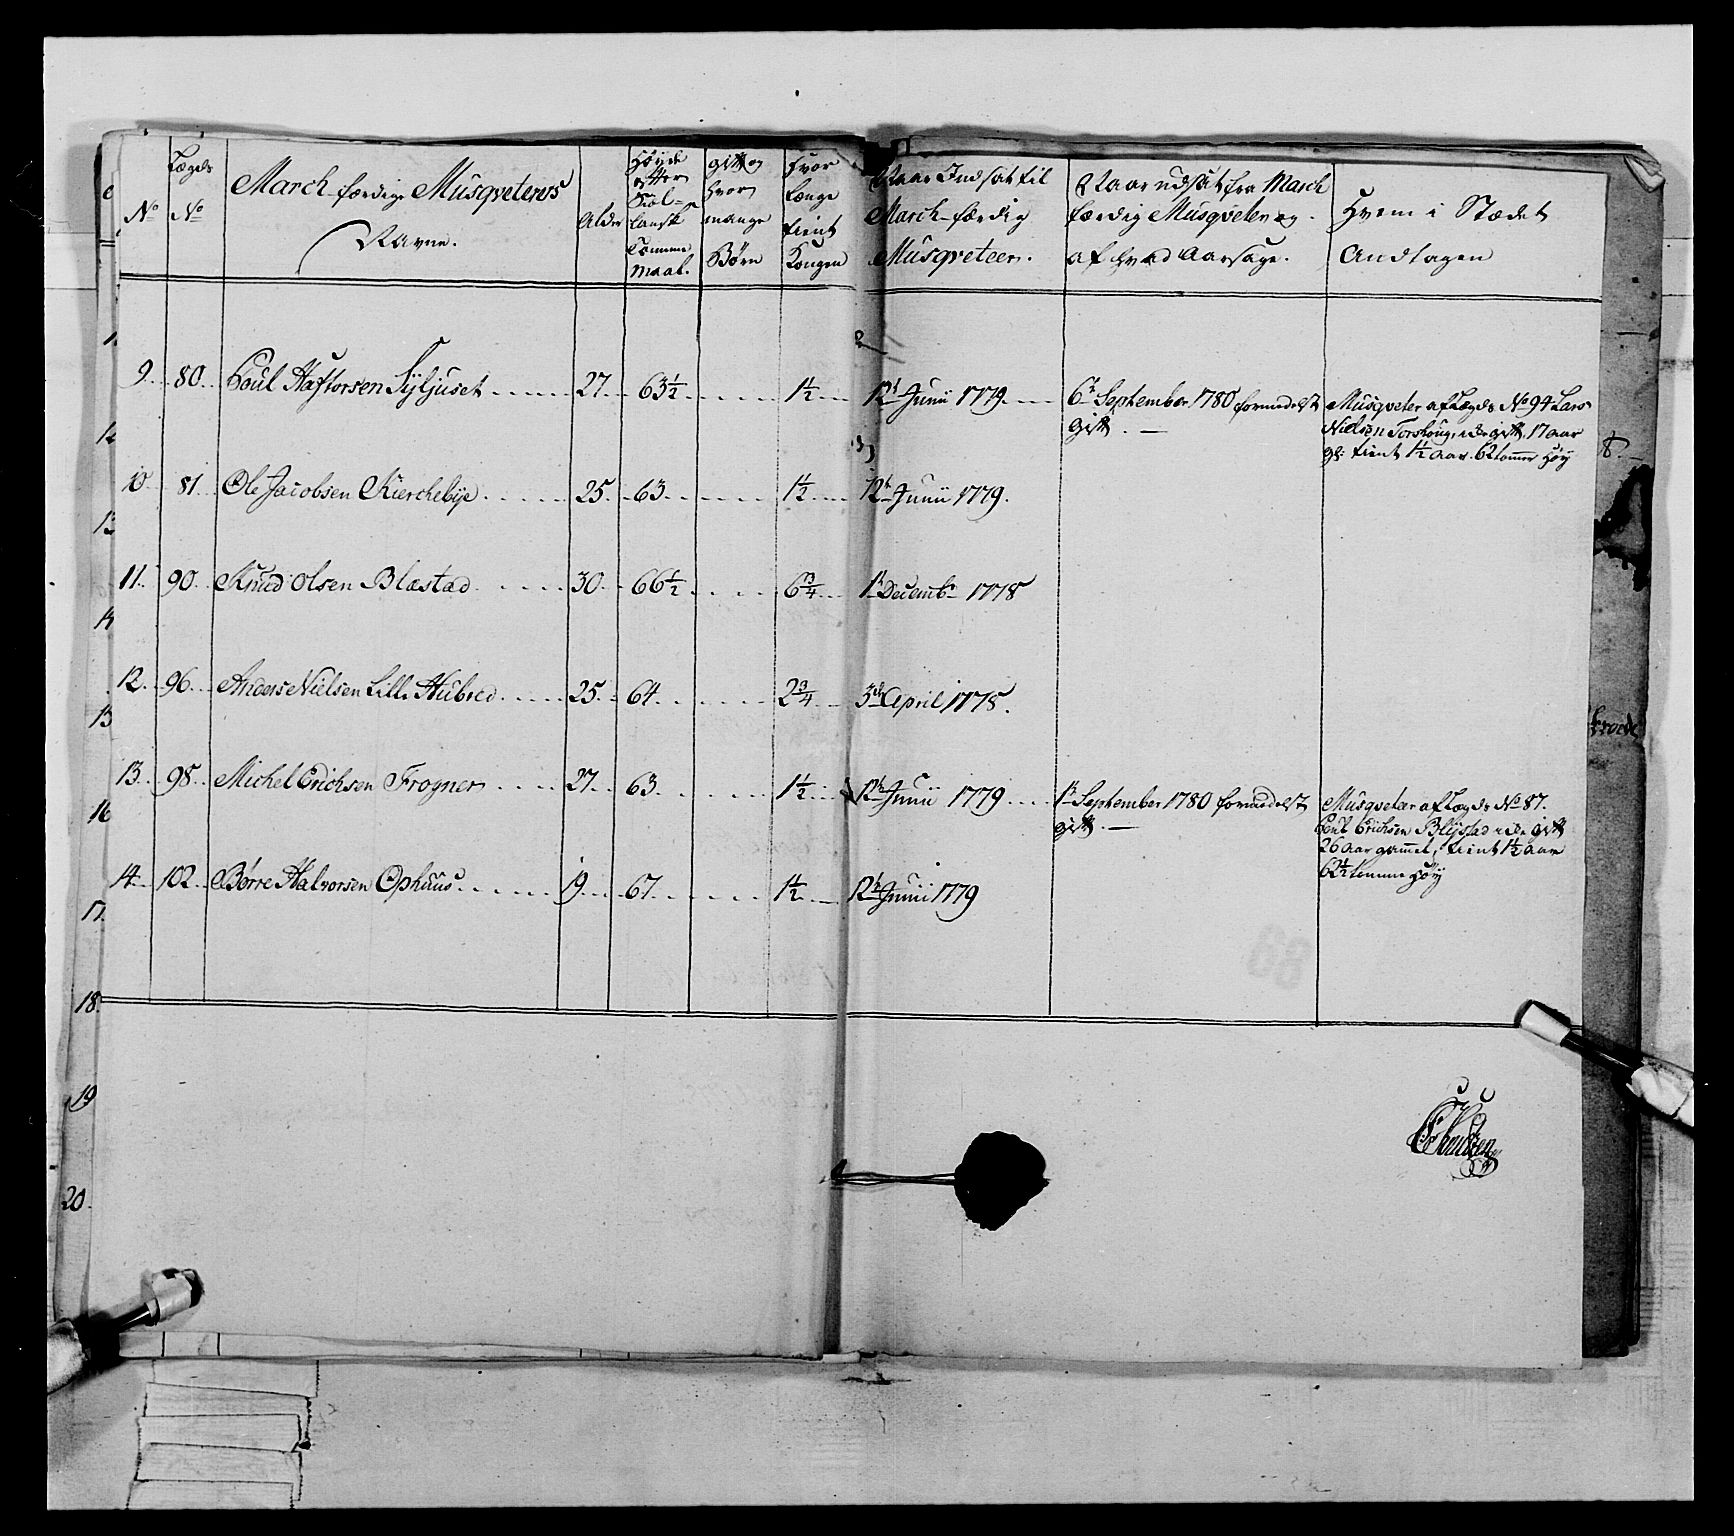 No
Lægds No
March-færdige Musqveteers Navne.
Alder
Høyde efter Siel-landsk Tomme maal.
gift og hvor mange Børn
Hvor længe tient Kongen
Naar Indsat til March-færdig Musqveteer.
Naar udsat fra March færdig Musqveter og af hvad Aarsage.
Hvem i Stædet Andtagen
9. 80. Poul Haftorsen Sÿljuset 27. 63½ 1½ 12te Junii 1779. 6te September 1780 formedelst Musqveter af Lægds No 94 Lars
gift. Nielsen Torshoug, u-gift, 17 aar
gl: tient 1½ aar. 62 tommer høy
10. 81. Ole Jacobsen Kierchebÿe 25. 63. 1½ 12te Junii 1779.
11. 90. Knud Olsen Blæstad 30. 66½ 6¾ 1te Decembr 1778
12. 96. Anders Nielsen Lille Aubred 25. 64. 2¾ 3die April 1778.
13. 98. Michel Erichsen Frogner 27. 63. 1½ 12te Junii 1779 1te September 1780 formedelst Musqveteer af Lægds No 87.
gift. Poul Erichsen Blÿstad u-gift
26 aar gammel, tient 1½ aar
62½ tomme høÿ
14. 102. Børre Halvorsen Ophuus 19. 67. 1½ 12te Junii 1779
13
14
16
17.
18.
19
20.
68